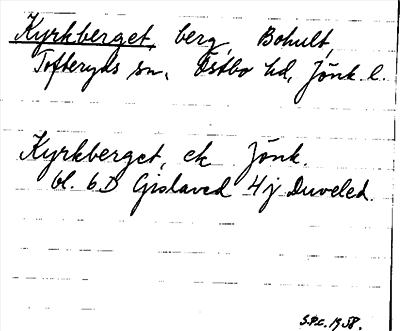 Kyrkberget, berg, Bohult,
Tofteryds sn, Östbo hd, Jönk. l.
Kyrkberget, ek Jönk.
bl. 6D Gislaved 4j Duveled.
S.P.C. 1958.